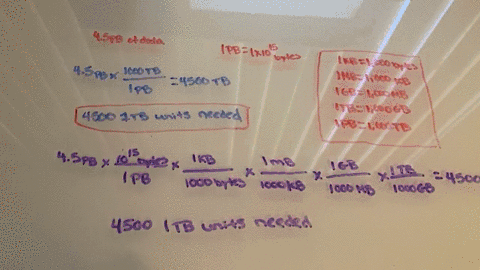 4.5PB of data
1PB = 1x10^15 bytes
4.5PB x 1000TB / 1PB = 4500 TB
4500 1TB units needed
1KB = 1,000 bytes
1MB = 1,000 KB
1GB = 1,000MB
1TB = 1,000GB
1PB = 1,000TB
4.5PB x 10^15 bytes / 1PB x 1KB / 1000 bytes x 1MB / 1000KB x 1GB / 1000 MB x 1TB / 1000GB = 4500
4500 1TB units needed